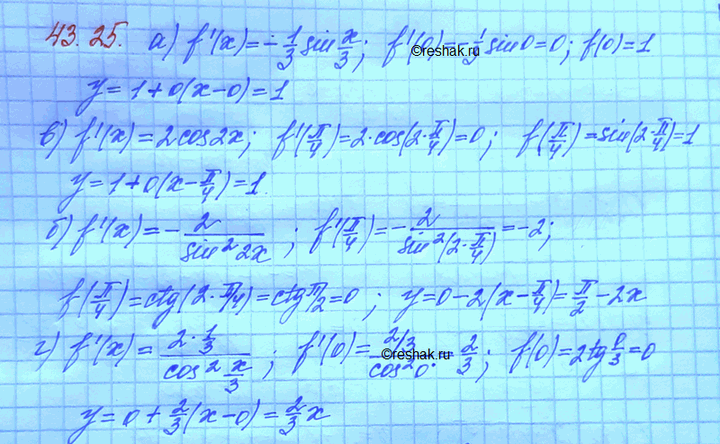 43.25. а) f'(x)=-1/3 sin x/3; f'(0)=-1/3 sin0=0; f(0)=1
©reshak.ru
y=1+0(x-0)=1
в) f'(x)=2cos2x; f'(π/4)=2·cos(2·π/4)=0; f(π/4)=sin(2·π/4)=1
y=1+0(x-π/4)=1.
б) f'(x)=-2/sin²2x; f'(π/4)=-2/sin²(2·π/4)=-2;
f(π/4)=ctg(2·π/4)=ctg π/2=0; y=0-2(x-π/4)=π/2-2x
г) f'(x)=2·1/3/cos² x/3; f'(0)=2/3/cos²0 · 2/3; f(0)=2tg 0/3=0
©reshak.ru
y=0+2/3(x-0)=2/3x